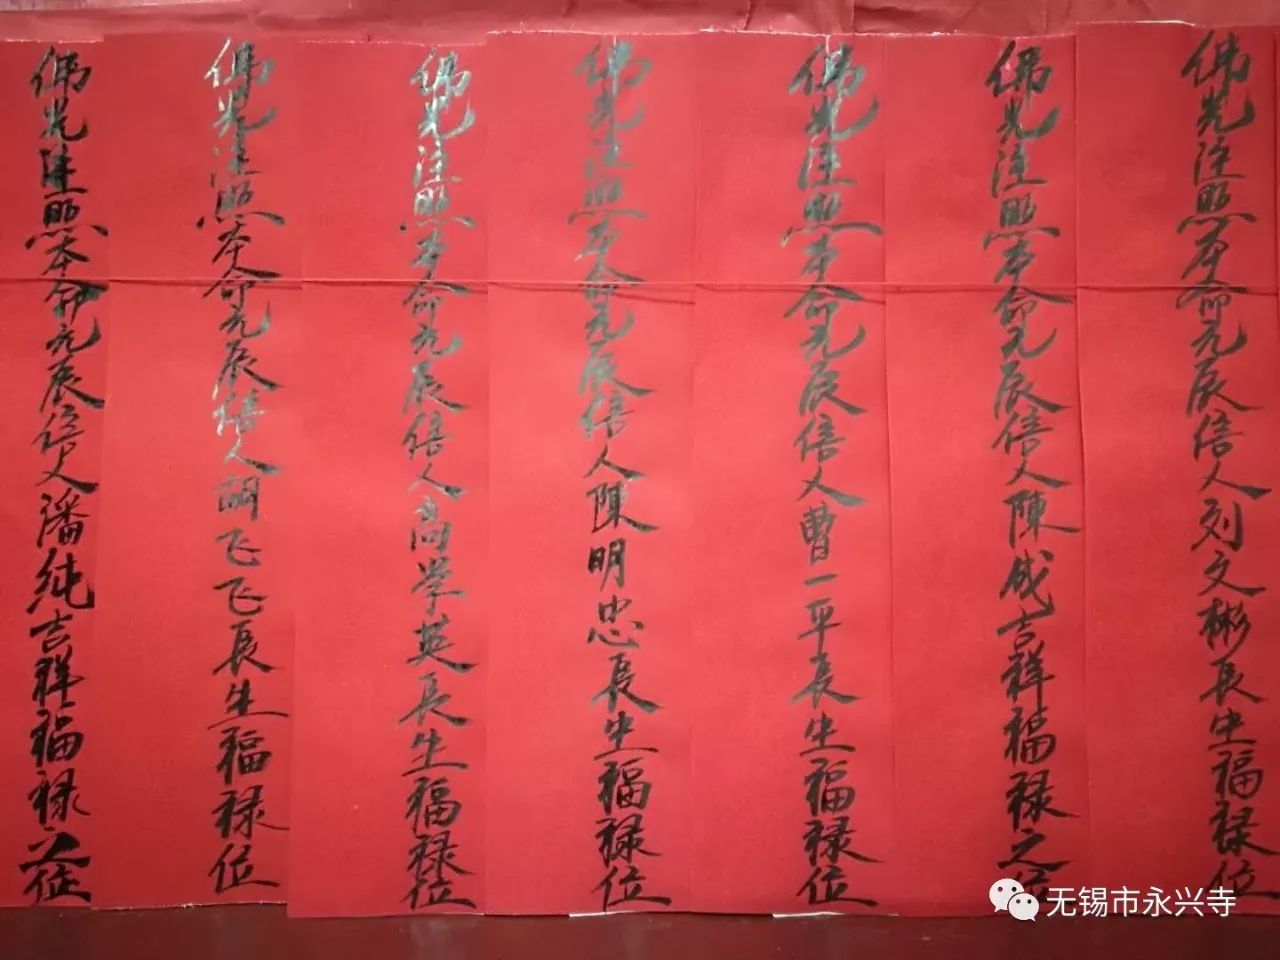 佛光注照本命元辰信人刘文彬長生福禄位
佛光注照本命元辰信人陳成吉祥福禄之位
佛光注照本命元辰信人曹一平長生福禄位
佛光注照本命元辰信人陳明忠長生福禄位
佛光注照本命元辰信人高学英長生福禄位
佛光注照本命元辰信人胡飞飞長生福禄位
佛光注照本命元辰信人潘純吉祥福禄之位
无锡市永兴寺